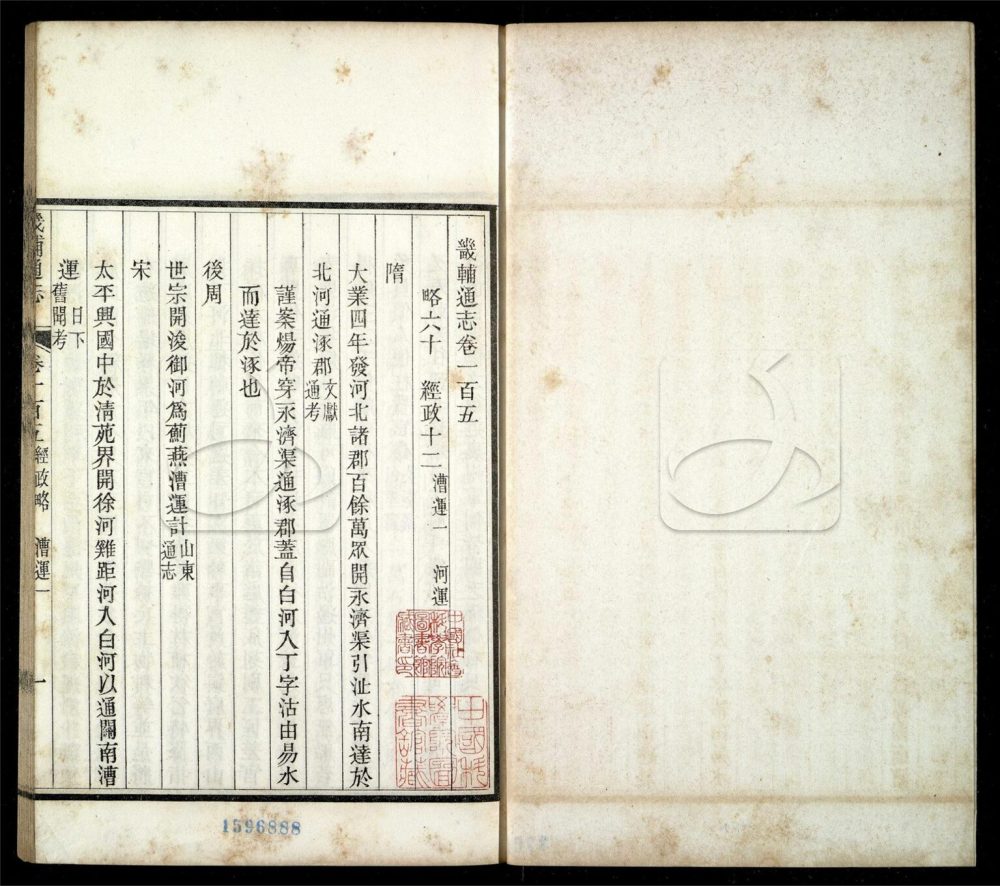 畿輔通志卷一百五
略六十　經政十二　漕運一　河運
隋
大業四年發河北諸郡百餘萬眾開永濟渠引沚水南達於
北河通涿郡文獻通考
謹案煬帝穿永濟渠通涿郡蓋自白河入丁字沽由易水
而達於涿也
後周
世宗開浚御河爲薊燕漕運計山東通志
宋
太平興國中於清苑界開徐河雞距河入白河以通關南漕
運日下舊聞考
畿輔通志　卷一百五經政略　漕運一　一
1596888